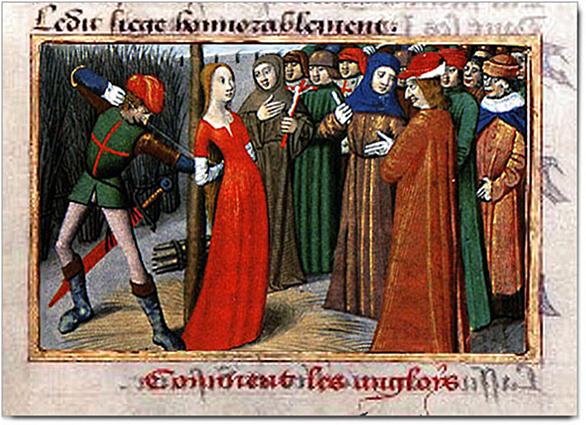 Ledit siege honnorablement.
Comment les anglois